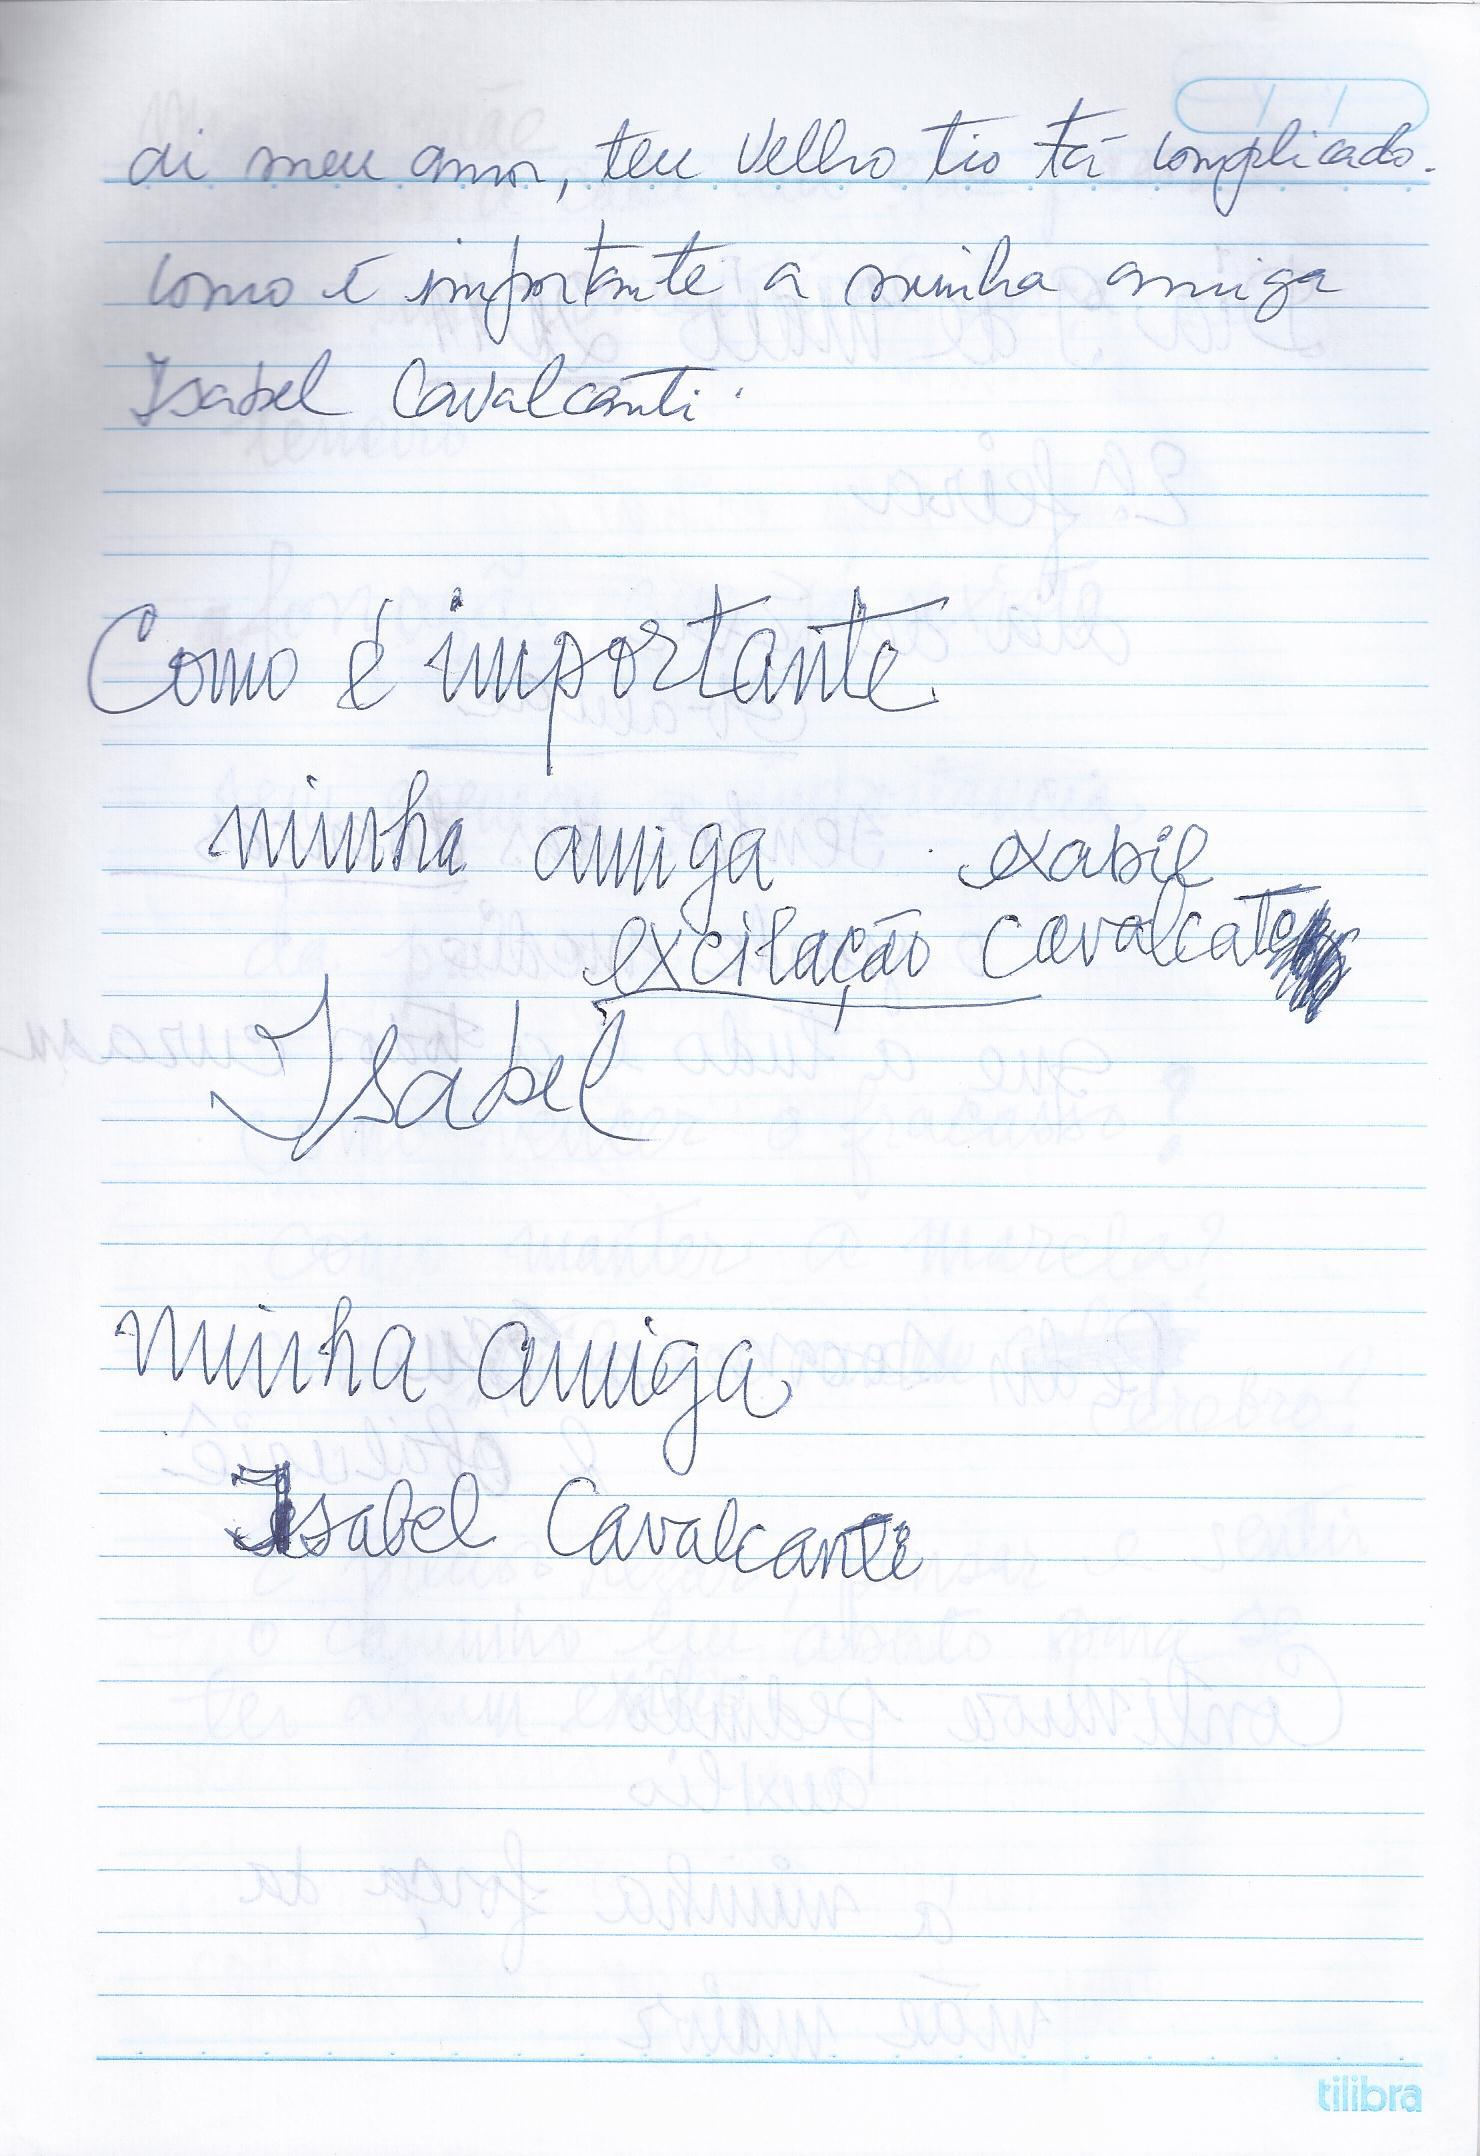 ai meu amor, teu velho tio tá complicado.
como é importante a minha amiga
Isabel Cavalcanti.
Como é importante
minha amiga exabil
excitação cavalcate
Isabel
minha amiga
Isabel Cavalcanti
tilibra